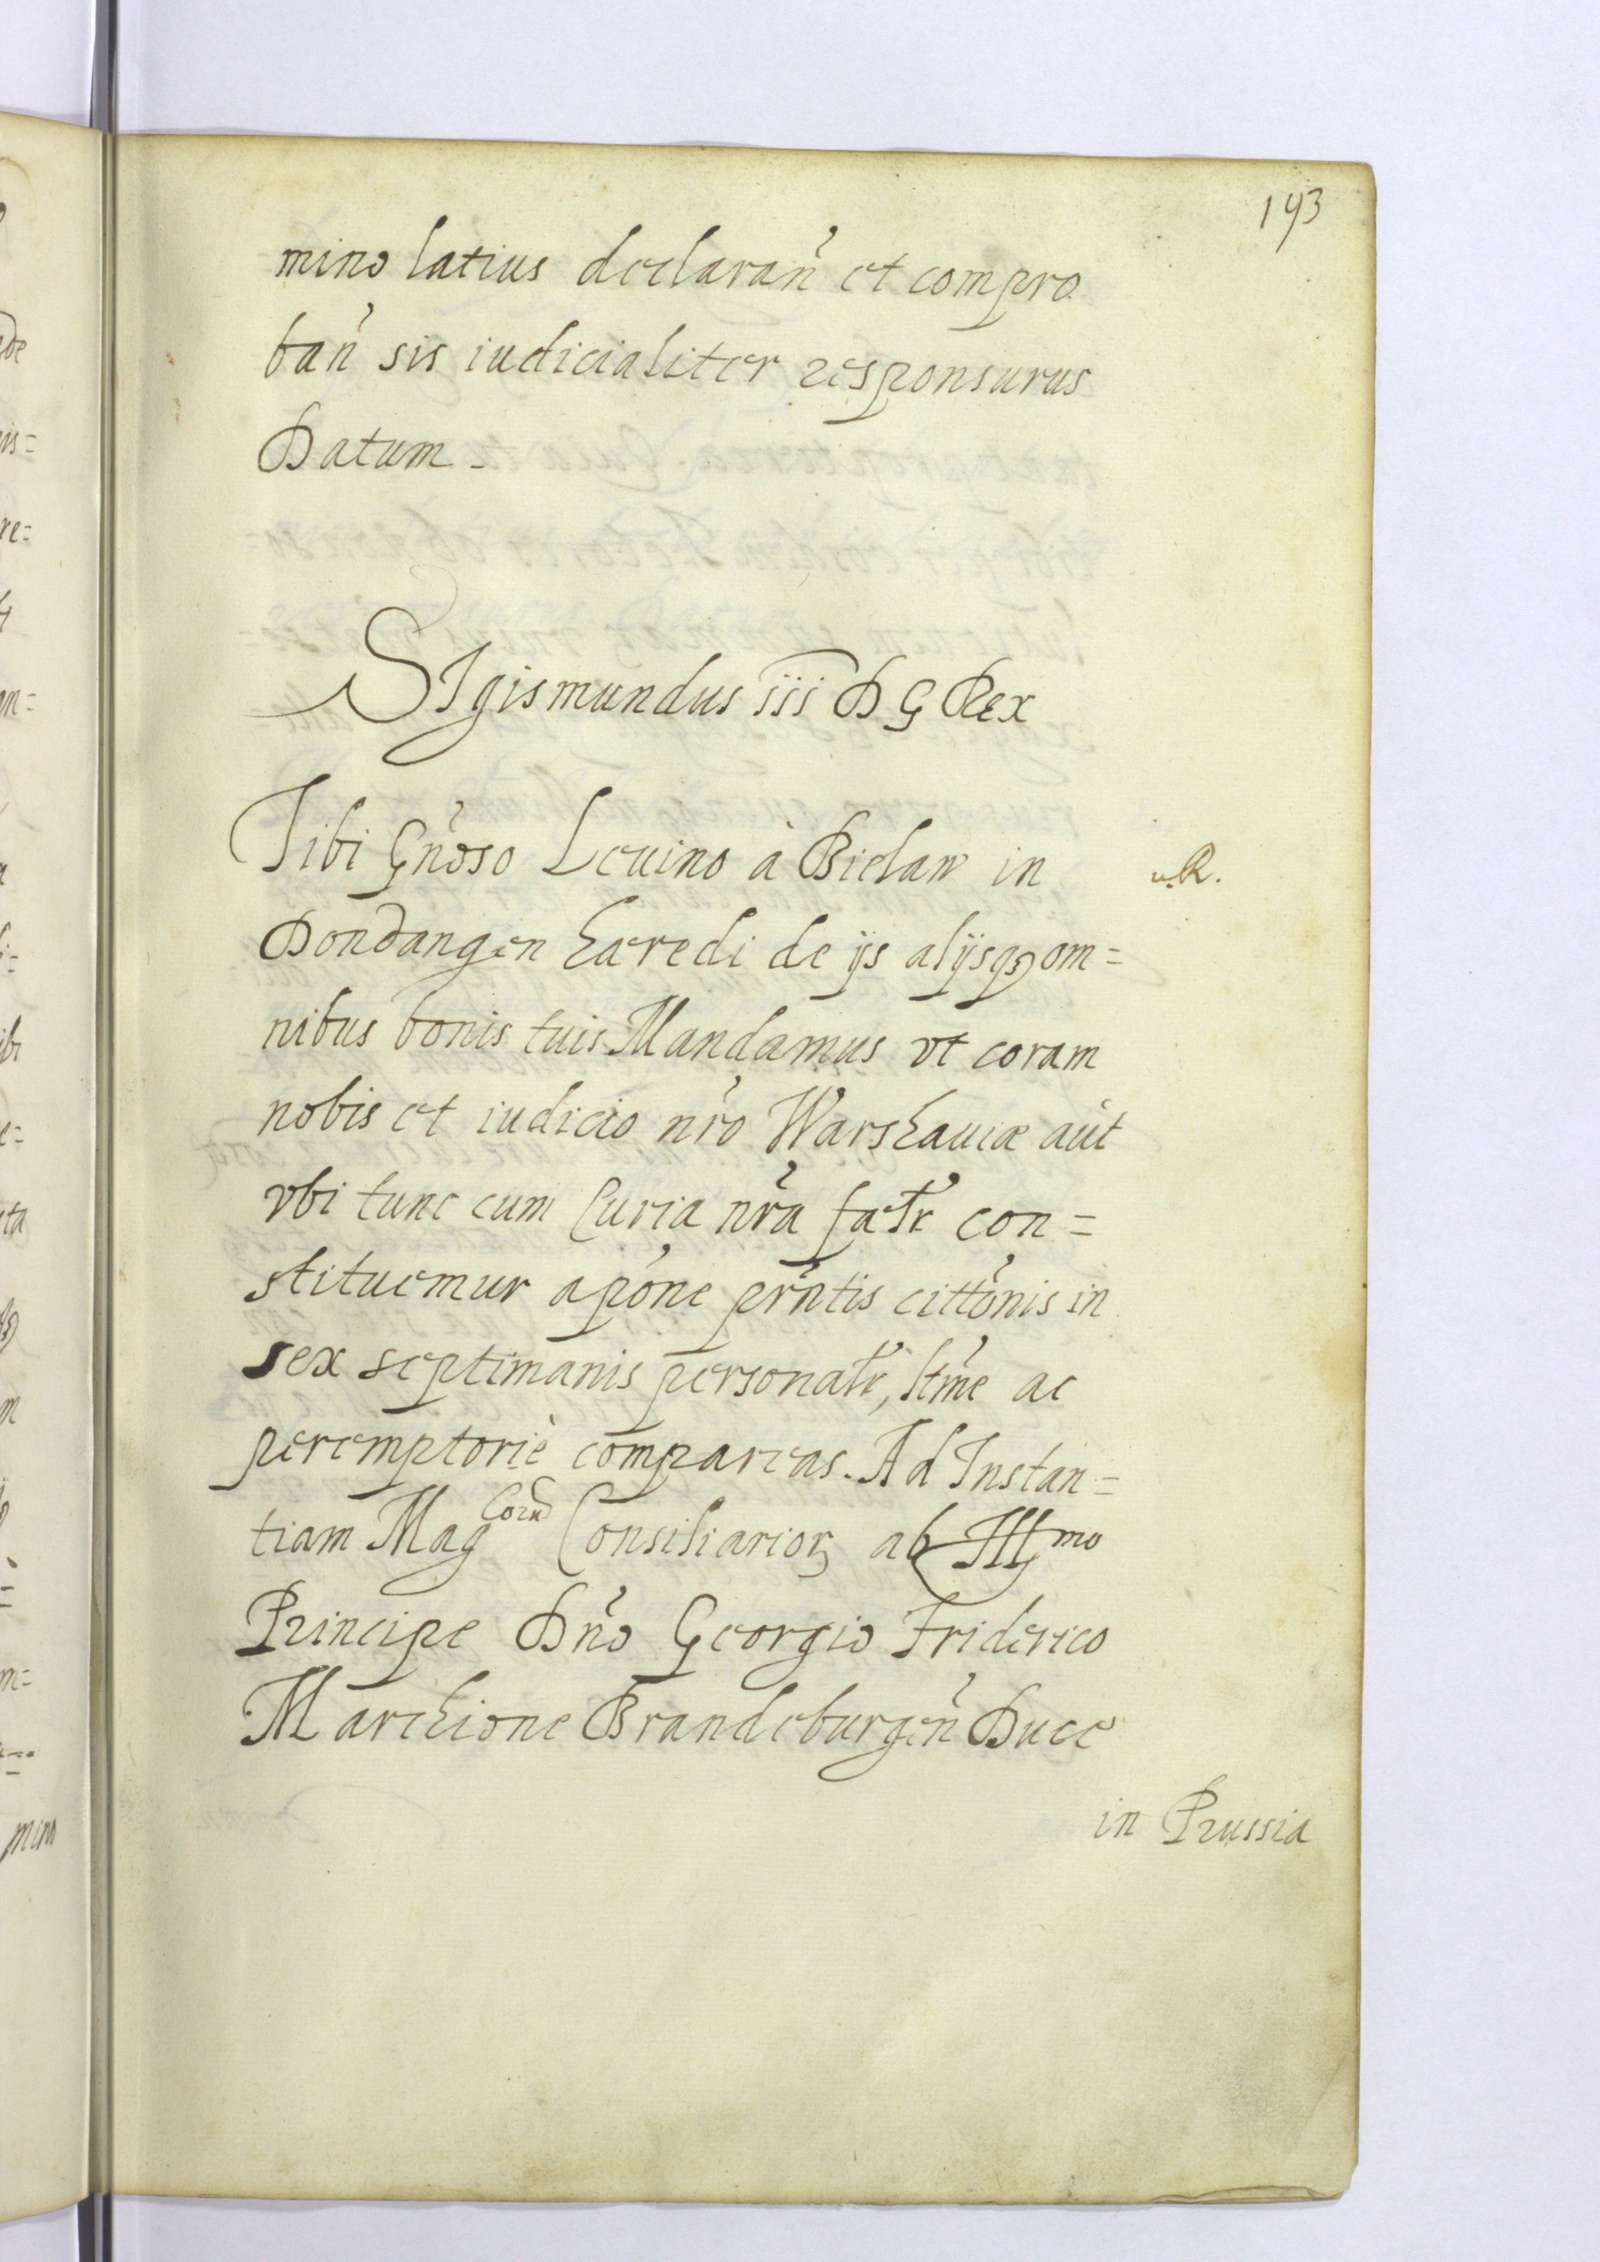 193
mino latius declarañ et compro
bañ sis iudicialiter responsurus
Datum -
SIgismundus iii D G Rex
Tibi Gñoso Leuino à Bielaw in
Dondangen haeredi de ijs alijsqꝫ om=
nibus bonis tuis Mandamus vt coram
nobis et iudicio nr̃o Warshauiæ aut
vbi tunc cum Curia nr̃a con=
stituemur apõne pr̃ntis cittõnis in
sex septimanis personalr̃, ltm̃e ac
peremptoriè compareas. Ad Instan=
tiam Mag Consiliarioꝝ ab Illmo
Principe Dño Georgio Friderico
Marchione Brandeburgeñ Duce
in Prussia